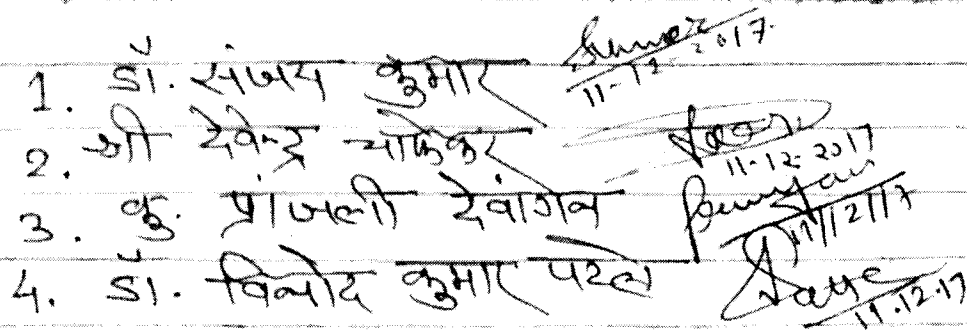 1. डॉ. संजय कुमार 11-12-2017
2. श्री देवेन्द्र 11-12-2017
3. कु. प्रांजली देवांगन 11/12/17
4. डॉ. विनोद कुमार पटेल 11.12.17